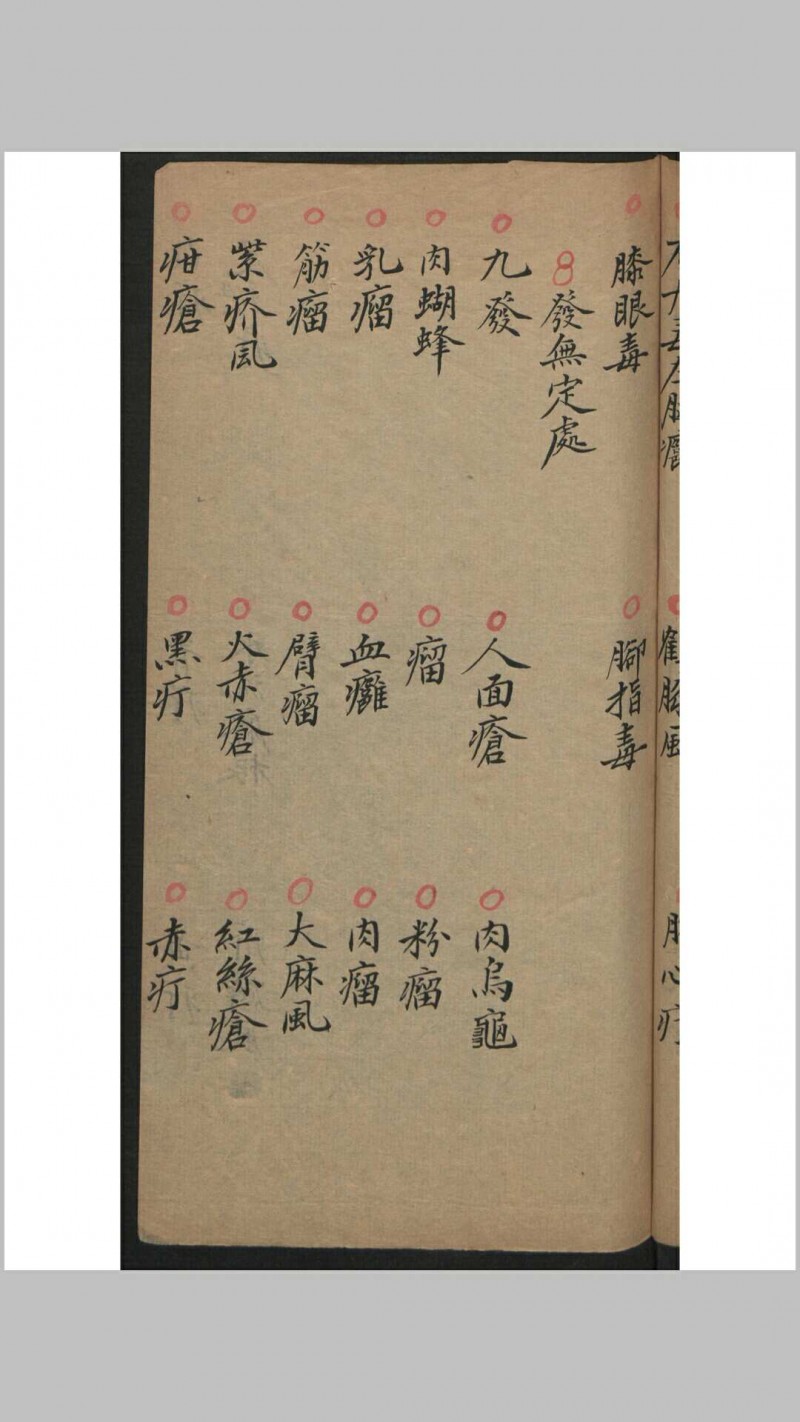 膝眼毒 腳指毒
發無定處
九發 人面瘡 肉烏龜
肉蝴蜂 瘤 粉瘤
乳瘤 血癱 肉瘤
筋瘤 臂瘤 大麻風
紫疥風 火赤瘡 紅絲瘡
疳瘡 黑疔 赤疔